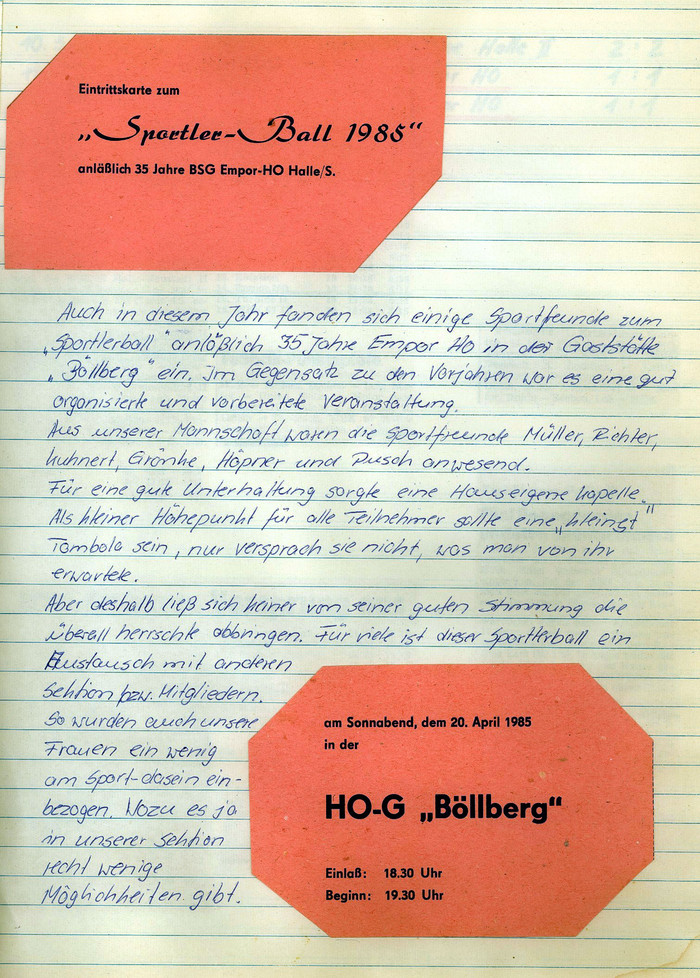 Eintrittskarte zum
„Sportler-Ball 1985“
anläßlich 35 Jahre BSG Empor-HO Halle/S.
Auch in diesem Jahr fanden sich einige Sportfreunde zum
„Sportlerball“ anläßlich 35 Jahre Empor HO in der Gaststätte
„Böllberg“ ein. Im Gegensatz zu den Vorjahren war es eine gut
organisierte und vorbereitete Veranstaltung.
Aus unserer Mannschaft waren die Sportfreunde Müller, Richter,
Kuhnert, Grönke, Höpner und Pusch anwesend.
Für eine gute Unterhaltung sorgte eine Hauseigene Kapelle.
Als kleiner Höhepunkt für alle Teilnehmer sollte eine „kleingt“
Tombola sein, nur versprach sie nicht, was man von ihr
erwartete.
Aber deshalb ließ sich keiner von seiner guten Stimmung die
überall herrschte abbringen. Für viele ist dieser Sportlerball ein
Austausch mit anderen
Sektion bzw. Mitgliedern.
So wurden auch unsere
Frauen ein wenig
am Sport-dasein ein-
bezogen. Wozu es ja
in unserer Sektion
recht wenige
Möglichkeiten gibt.
am Sonnabend, dem 20. April 1985
in der
HO-G „Böllberg“
Einlaß: 18.30 Uhr
Beginn: 19.30 Uhr